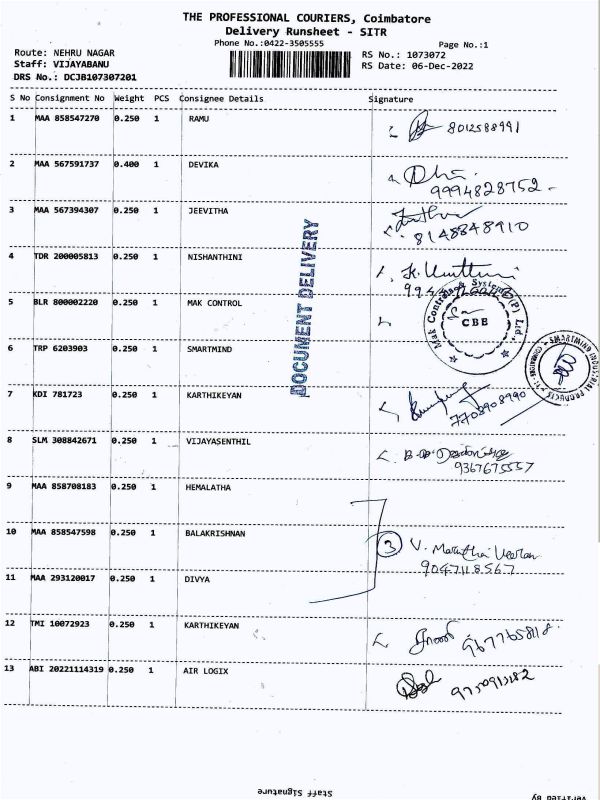 THE PROFESSIONAL COURIERS, Coimbatore
Delivery Runsheet - SITR
Phone No.:0422-3505555
Page No.:1
Route: NEHRU NAGAR
RS No.: 1073072
Staff: VIJAYABANU
RS Date: 06-Dec-2022
DRS No.: DCJB107307201
S No Consignment No Weight PCS Consignee Details Signature
1 MAA 858547270 0.250 1 RAMU 8012588991
2 MAA 567591737 0.400 1 DEVIKA
9994828752
3 MAA 567394307 0.250 1 JEEVITHA
8148848910
4 TDR 200005813 0.250 1 NISHANTHINI
5 BLR 800002220 0.250 1 MAK CONTROL
Mak Controls & Systems (P) Ltd.,
CBE
DOCUMENT DELIVERY
6 TRP 6203903 0.250 1 SMARTMIND
SMARTMIND INDUSTRIAL PRODUCTS
7 KDI 781723 0.250 1 KARTHIKEYAN
7708908990
8 SLM 308842671 0.250 1 VIJAYASENTHIL
9367675557
9 MAA 858708183 0.250 1 HEMALATHA
10 MAA 858547598 0.250 1 BALAKRISHNAN
3 V. Marutha Veeran
9047118567
11 MAA 293120017 0.250 1 DIVYA
12 TMI 10072923 0.250 1 KARTHIKEYAN
13 ABI 20221114319 0.250 1 AIR LOGIX
Staff Signature
Verified By